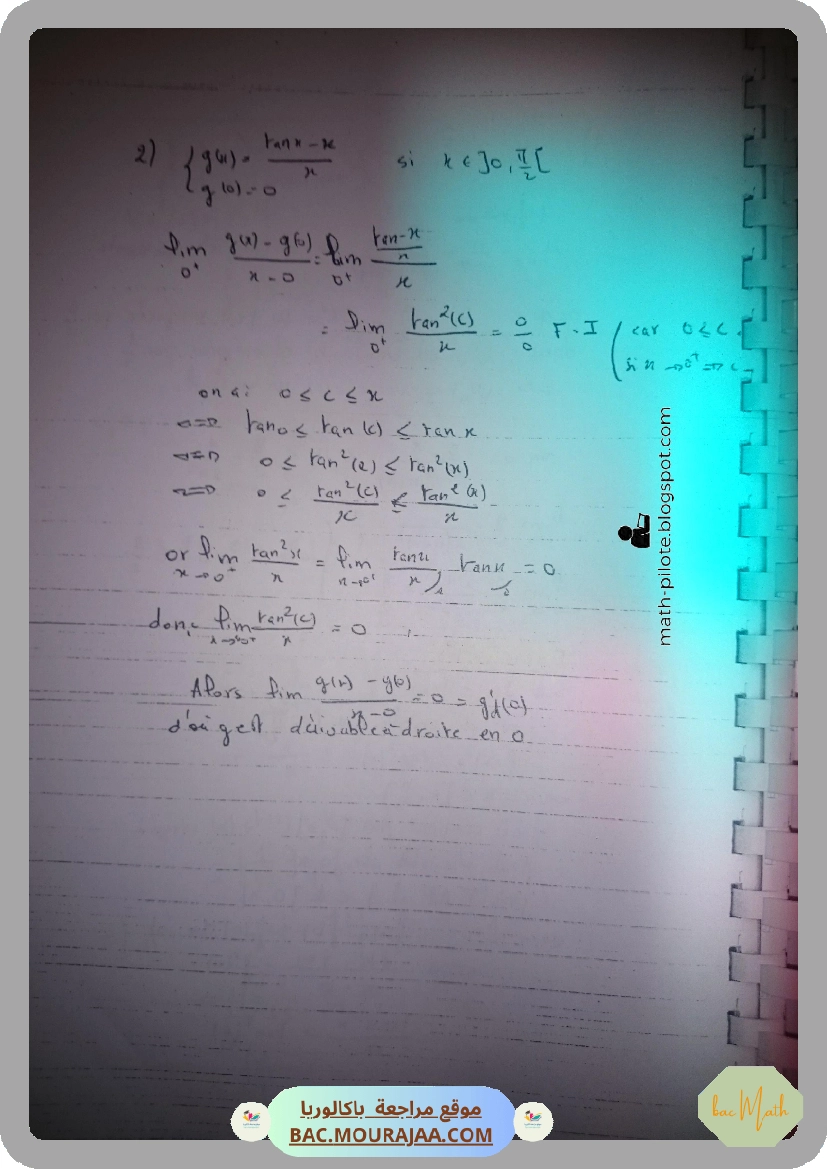 2) { g(x) = (tan x - x)/x si x ∈ ]0, π/2[
g(0) = 0
lim 0⁺ (g(x) - g(0))/(x - 0) = lim 0⁺ ((tan - x)/x)/x
= lim 0⁺ tan²(c)/x = 0/0 F.I ( car 0 ≤ c
si x → 0⁺ ⇒ c
on a: 0 ≤ c ≤ x
⇒ tan 0 ≤ tan(c) ≤ tan x
⇒ 0 ≤ tan²(c) ≤ tan²(x)
⇒ 0 ≤ tan²(c)/x ≤ tan²(x)/x
or lim x→0⁺ tan²x/x = lim x→0⁺ tan x/x tan x = 0
donc lim x→0⁺ tan²(c)/x = 0
Alors lim (g(x) - g(0))/(x - 0) = 0 = g'd(0)
d'où g est dérivable à droite en 0
math-pilote.blogspot.com
موقع مراجعة باكالوريا
BAC.MOURAJAA.COM
bac Math